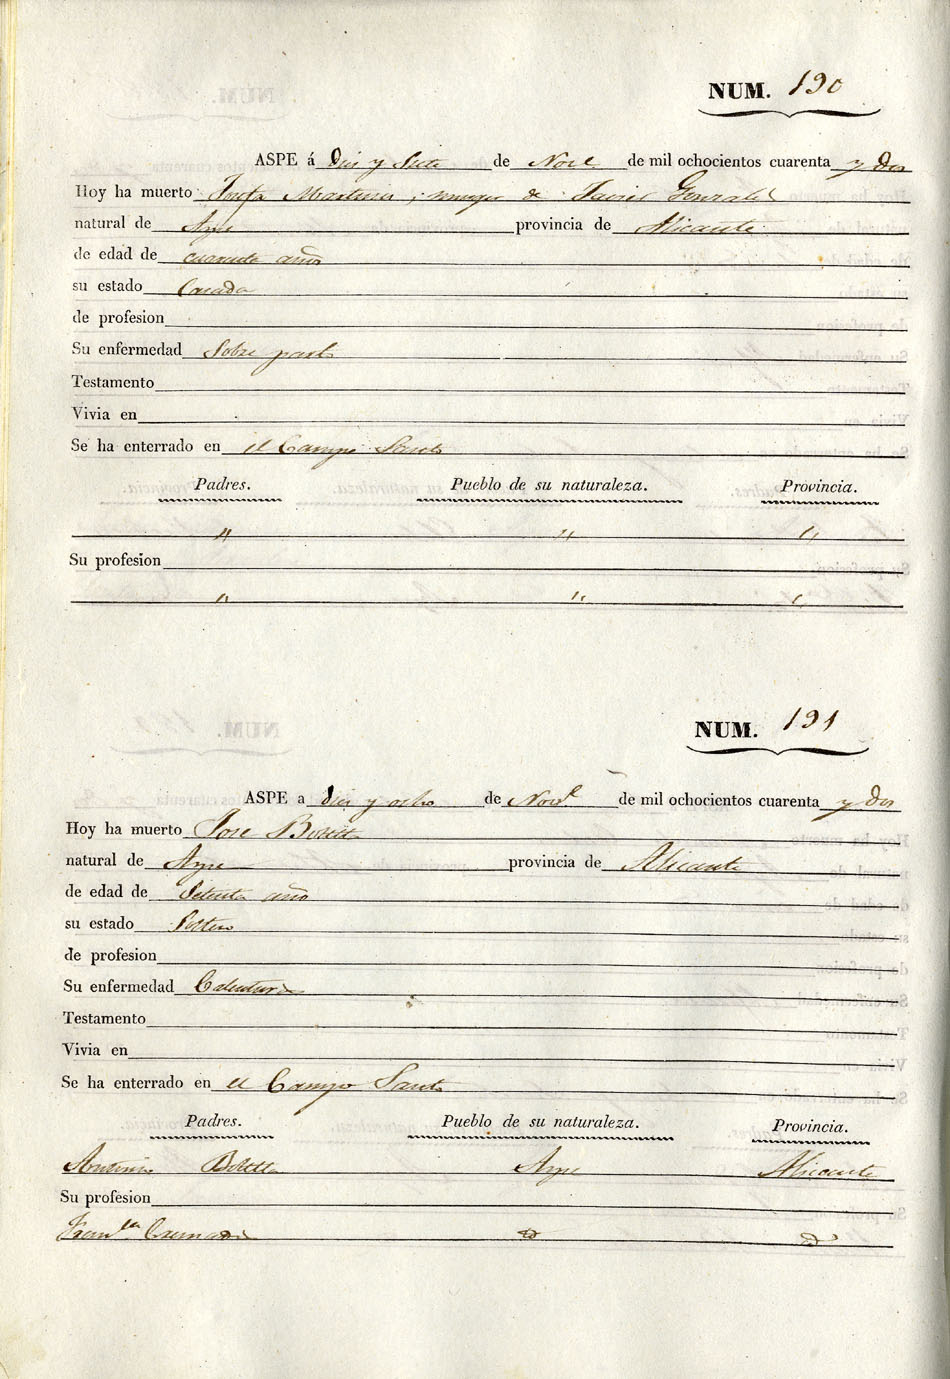 NUM. 190
ASPE á Dies y Siete de Nove de mil ochocientos cuarenta y Dos
Hoy ha muerto Josefa Martines, muger de Javier Gonzales
natural de Aspe provincia de Alicante
de edad de cuarenta años
su estado Casada
de profesion
Su enfermedad Sobre parto
Testamento
Vivia en
Se ha enterrado en el Campo Santo
Padres. Pueblo de su naturaleza. Provincia.
" " "
Su profesion
" " "
NUM. 191
ASPE a dies y ocho de Nove de mil ochocientos cuarenta y Dos
Hoy ha muerto Jose Botella
natural de Aspe provincia de Alicante
de edad de Setenta años
su estado Soltero
de profesion
Su enfermedad Calentura
Testamento
Vivia en
Se ha enterrado en el Campo Santo
Padres. Pueblo de su naturaleza. Provincia.
Antonio Botella Aspe Alicante
Su profesion
Franca Cremades